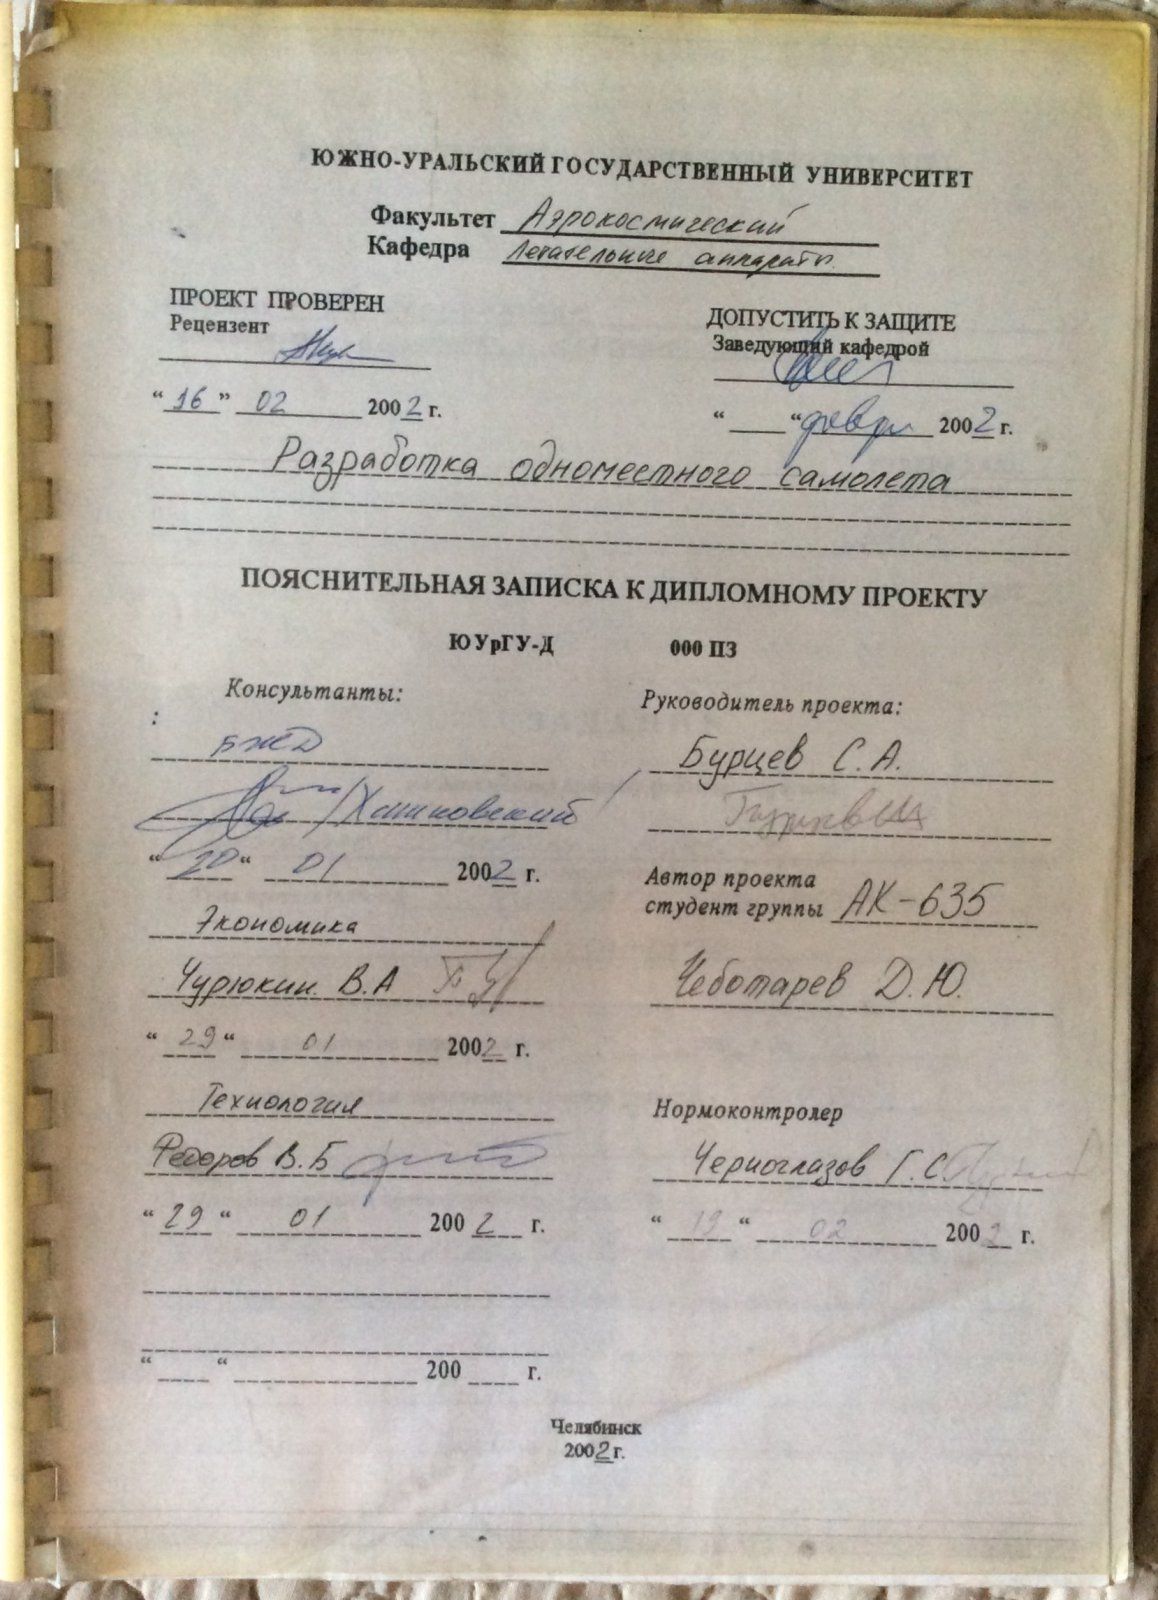 ЮЖНО-УРАЛЬСКИЙ ГОСУДАРСТВЕННЫЙ УНИВЕРСИТЕТ
Факультет Аэрокосмический
Кафедра Летательные аппараты
ПРОЕКТ ПРОВЕРЕН
Рецензент
“16” 02 2002 г.
ДОПУСТИТЬ К ЗАЩИТЕ
Заведующий кафедрой
“ “ 2002 г.
Разработка одноместного самолета
ПОЯСНИТЕЛЬНАЯ ЗАПИСКА К ДИПЛОМНОМУ ПРОЕКТУ
ЮУрГУ-Д 000 ПЗ
Консультанты:
:
БЖД
“20“ 01 2002 г.
Экономика
Чурюкин В.А
“29“ 01 2002 г.
Технология
Федоров В.Б
“29“ 01 2002 г.
“ “ 200 г.
Руководитель проекта:
Бурцев С.А.
Автор проекта
студент группы АК-635
Чеботарев Д.Ю.
Нормоконтролер
Черноглазов Г.С.
“19“ 02 2002 г.
Челябинск
2002 г.